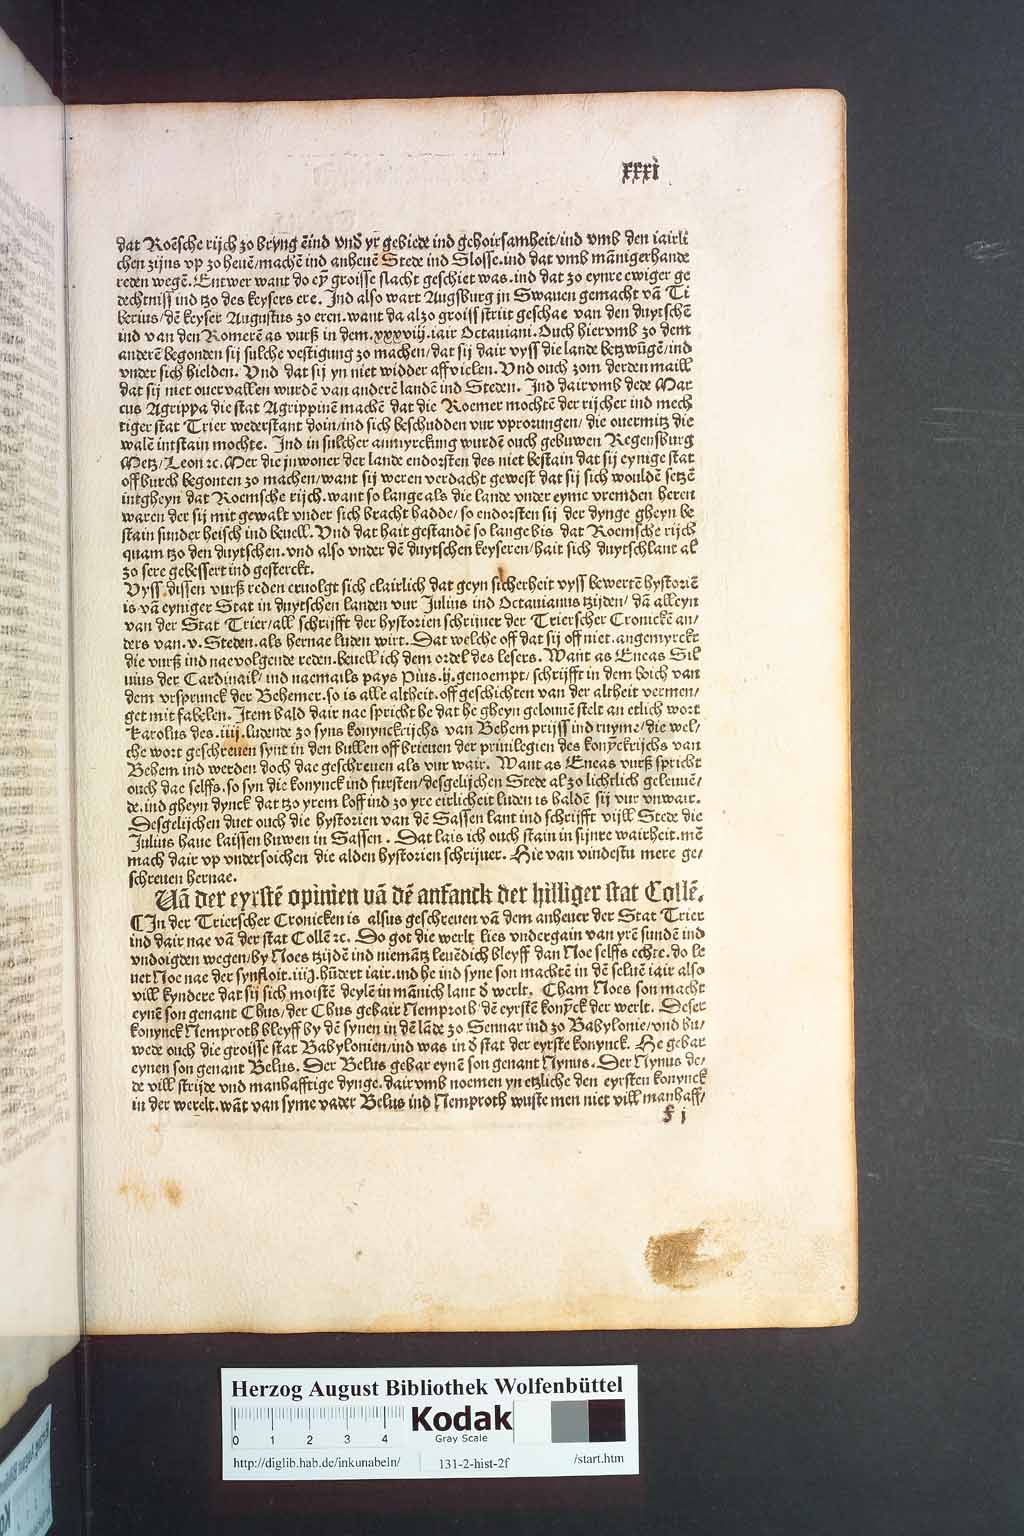 xxxi
dat Roēsche rijch zo bryng ēind vnd yr gebiede ind gehoirsamheit/ind vmb den iairli
chen zijns vp zo heuē/machē ind anheuē Stede ind Slosse.ind dat vmb mānigerhande
reden wegē. Entwer want do eȳ groisse slacht geschiet was.ind dat zo eynre ewiger ge
dechtniss ind tzo des keysers ere. Ind also wart Augsburg in Swauen gemacht vā Ti
berius/dē keyser Augustus zo eren.want da alzo groiss striit geschae van den duytschē
ind van den Romerē as vurß in dem.xxxviij.iair Octauiani. Ouch hiervmb zo dem
anderē begonden sij sulche vestigung zo machen/dat sij dair vyss die lande betzwūgē/ind
vnder sich hielden. Vnd dat sij yn niet widder affvielen. Vnd ouch zom derden maill
dat sij niet ouervallen wurdē van anderē landē ind Steden. Ind dairvmb dede Mar
cus Agrippa die stat Agrippinē machē dat die Roemer mochtē der rijcher ind mech
tiger stat Trier wederstant doin/ind sich beschudden vur vprozungen/die ouermitz die
walē intstain mochte. Ind in sulcher anmyrckung wurdē ouch gebuwen Regensburg
Metz/Leon ꝛc. Mer die jnwoner der lande endorsten des niet bestain dat sij eynige stat
off burch begonten zo machen/want sij weren verdacht gewest dat sij sich wouldē setzē
intgheyn dat Roemsche rijch.want so lange als die lande vnder eyme vremden heren
waren der sij mit gewalt vnder sich bracht hadde/so endorsten sij der dynge gheyn be
stain sunder heisch ind beuell. Vnd dat hait gestandē so lange bis dat Roemsche rijch
quam tzo den duytschen.vnd also vnder dē duytschen keyseren/hait sich duytschlant al
zo sere gebessert ind gesterckt.
Vyss dissen vurß reden ervolgt sich clairlich dat geyn sicherheit vyss bewertē hystoriē
is vā eyniger Stat in duytschen landen vur Julius ind Octauianus tzijden/dā alleyn
van der Stat Trier/all schrijfft der hystorien schrijuer der Trierscher Cronickē an/
ders van.v.Steden.als hernae luden wirt. Dat welche off dat sij off niet.angemyrckt
die vurß ind naevolgende reden.beuell ich dem ordel des lesers. Want as Eneas Sil
uius der Cardinail/ind naemails pays Pius.ij.genoempt/schrijfft in dem boich van
dem vrsprunck der Behemer.so is alle altheit.off geschichten van der altheit vermen/
get mit fabelen. Item bald dair nae spricht he dat he gheyn gelouuē stelt an etlich wort
Karolus des.iiij.ludende zo syns konynckrijchs van Behem prijss ind ruyme/die wel/
che wort geschreuen synt in den bullen off brieuen der priuilegien des konȳckrijchs van
Behem ind werden doch dae geschreuen als vur wair. Want as Eneas vurß spricht
ouch dae selffs.so syn die konynck ind fursten/desgelijchen Stede al zo lichtlich geleuuē/
de.ind gheyn dynck dat tzo yrem loff ind zo yre eirlicheit luden is haldē sij vur vnwair.
Desgelijchen duet ouch die hystorien van dē Sassen lant ind schrijfft vijll Stede die
Julius haue laissen buwen in Sassen. Dat lais ich ouch stain in sijnre wairheit.mē
mach dair vp vndersoichen die alden hystorien schrijuer. Hie van vindestu mere ge/
schreuen hernae.
Uā der eyrstē opinien vā dē anfanck der hilliger stat Collē.
¶ In der Trierscher Cronicken is alsus geschreuen vā dem anheuer der Stat Trier
ind dair nae vā der stat Collē ꝛc. Do got die werlt lies vndergain van yrē sundē ind
vndoigden wegen/by Noes tzijdē ind niemātz leuēdich bleyff dan Noe selffs echte.do le
uet Noe nae der synfloit.iiiJ.hūdert iair.ind he ind syne son machtē in dē seluē iair also
vill kyndere dat sij sich moistē deylē in mānich lant d̄ werlt. Cham Noes son macht
eynē son genant Chus/der Chus gebair Nemproth dē eyrstē konȳck der werlt. Deser
konynck Nemproth bleyff by dē synen in dē lāde zo Sennar ind zo Babylonie/vnd bu/
wede ouch die groisse stat Babylonien/ind was in d̄ stat der eyrste konynck. He gebar
eynen son genant Belus. Der Belus gebar eynē son genant Nynus. Der Nynus de/
de vill strijde vnd manhafftige dynge.dair vmb noemen yn etzliche den eyrsten konynck
in der werelt.wāt van syme vader Belus ind Nemproth wuste men niet vill manhaff/
f j
Herzog August Bibliothek Wolfenbüttel
0 1 2 3 4
Kodak
Gray Scale
http://diglib.hab.de/inkunabeln/ 131-2-hist-2f /start.htm